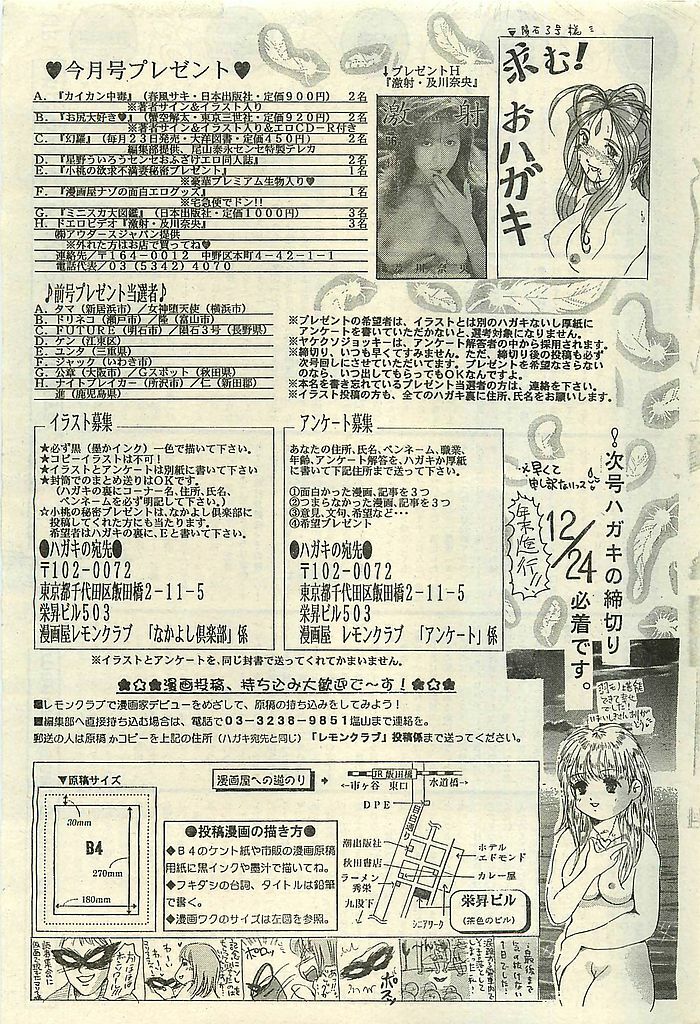 ♥今月号プレゼント♥
A.『カイカン中毒』(春風サキ・日本出版社・定価900円) 2名
※著者サイン&イラスト入り
B.『お尻大好き♥』(蟹空解太・東京三世社・定価920円) 2名
※著者サイン&イラスト入り&エロCD-R付き
C.『幻羅』(毎月23日発売・大洋図書・定価450円) 2名
編集部提供、尾山泰永センセ特製テレカ
D.『星野ういろうセンセおふざけエロ同人誌』 2名
E.『小桃の欲求不満妻秘密プレゼント』 1名
※豪華プレミアム生物入り♥
F.『漫画屋ナゾの面白エログッズ』 1名
※宅急便でドン!!
G.『ミニスカ大図鑑』(日本出版社・定価1000円) 3名
H. ドエロビデオ『激射・及川奈央』 3名
㈱アウダースジャパン提供
※外れた方はお店で買ってね♥
連絡先/〒164-0012 中野区本町4-42-1-1
電話代表/03(5342)4070
↓プレゼントH
『激射・及川奈央』
激射
及川奈央
求む!
おハガキ
♪前号プレゼント当選者♪
A. タマ(新居浜市)/女神堕天使(横浜市)
B. ドリネコ(瀬戸市)/隆(富山市)
C. FUTURE(明石市)/隕石3号(長野県)
D. ケン(江東区)
E. ユンタ(三重県)
F. ジャック(いわき市)
G. 公章(大阪市)/Gスポット(秋田県)
H. ナイトブレイカー(所沢市)/仁(新田郡)
進(鹿児島県)
※プレゼントの希望者は、イラストとは別のハガキないし厚紙に
アンケートを書いていただかないと、選考対象になりません。
※ヤケクソジョッキーは、アンケート解答者の中から採用されます。
※締切り、いつも早くてすみません。ただ、締切り後の投稿も必ず
次号回しにさせていただいてます。プレゼントを希望なさらない
のなら、いつ出してもらってもOKなんですよ。
※本名を書き忘れているプレゼント当選者の方は、連絡を下さい。
※イラスト投稿の方も、全てのハガキ裏に住所、氏名をお願いします。
イラスト募集
★必ず黒(墨かインク)一色で描いて下さい。
★コピーイラストは不可!
★イラストとアンケートは別紙に書いて下さい
★封筒でのまとめ送りはOKです。
(ハガキの裏にコーナー名、住所、氏名、
ペンネームを必ず明記して下さい。)
☆小桃の秘密プレゼントは、なかよし倶楽部に
投稿してくれた方にも当たります。
希望者はハガキの裏に、Eと書いて下さい。
●ハガキの宛先●
〒102-0072
東京都千代田区飯田橋2-11-5
栄昇ビル503
漫画屋レモンクラブ 「なかよし倶楽部」係
アンケート募集
あなたの住所、氏名、ペンネーム、職業、
年齢、アンケート解答を、ハガキか厚紙
に書いて下記住所まで送って下さい。
①面白かった漫画、記事を3つ
②つまらなかった漫画、記事を3つ
③意見、文句、希望など…
④希望プレゼント
●ハガキの宛先●
〒102-0072
東京都千代田区飯田橋2-11-5
栄昇ビル503
漫画屋 レモンクラブ 「アンケート」係
!次号ハガキの締切り
12/24必着です。
年末進行!!
※イラストとアンケートを、同じ封書で送ってくれてかまいません。
★✩★漫画投稿、持ち込み大歓迎で〜す!★✩★
■レモンクラブで漫画家デビューをめざして、原稿の持ち込みをしてみよう!
■編集部へ直接持ち込む場合は、電話で03-3238-9851塩山まで連絡を。
郵送の人は原稿かコピーを上記の住所(ハガキ宛先と同じ)「レモンクラブ」投稿係まで送ってください。
▼原稿サイズ
30mm
B4
270mm
180mm
漫画屋への道のり
●投稿漫画の描き方●
◆B4のケント紙や市販の漫画原稿
用紙に黒インクや墨汁で描いてね。
◆フキダシの台詞、タイトルは鉛筆
で書く。
◆漫画ワクのサイズは左図を参照。
JR飯田橋
←市ヶ谷 東口
水道橋→
DPE
目白通り
潮出版社
秋田書店
ラーメン
秀栄
九段下
ホテル
エドモンド
カレー屋
シニアワーク
栄昇ビル
(茶色のビル)